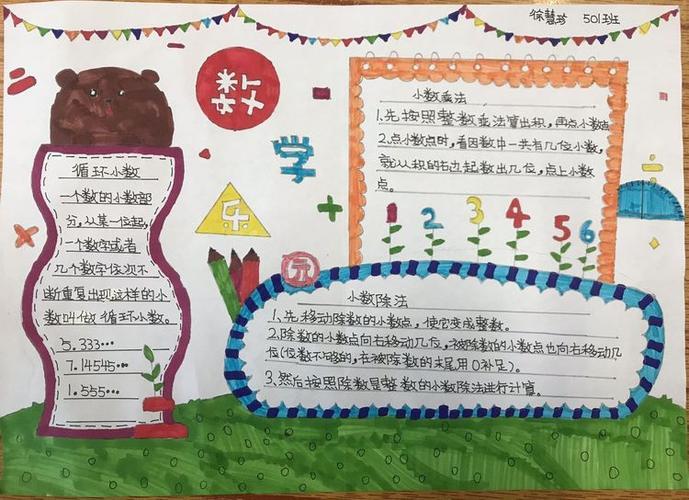 徐慧珍 501班
数
学
乐
园
循环小数
一个数的小数部
分,从某一位起,
一个数字或者
几个数字依次不
断重复出现这样的小
数叫做循环小数。
5.333…
7.14545…
1.555…
小数乘法
1.先按照整数乘法算出积,再点小数点
2.点小数点时,看因数中一共有几位小数,
就从积的右边起数出几位,点上小数
点。
1 2 3 4 5 6
小数除法
1.先移动除数的小数点,使它变成整数。
2.除数的小数点向右移动几位,被除数的小数点也向右移动几
位(位数不够的,在被除数的末尾用0补足)。
3.然后按照除数是整数的小数除法进行计算。